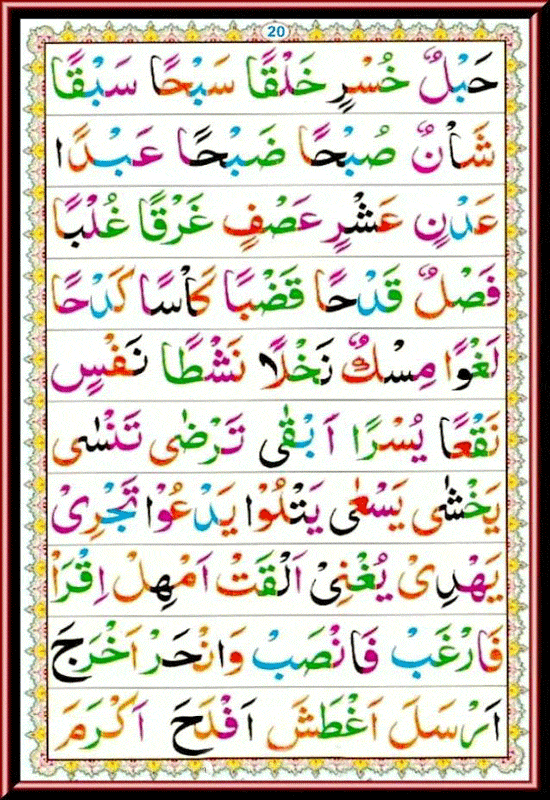 20
حَبْلٌ خُسْرٍ خَلْقًا سَبْحًا سَبْقًا
شَاْنٌ صُبْحًا ضَبْحًا عَبْدًا
عَدْنٍ عَشْرٍ عَصْفٍ غَرْقًا غُلْبًا
فَصْلٌ قَدْحًا قَضْبًا كَاْسًا كَدْحًا
لَغْوًا مِسْكٌ نَخْلًا نَشْطًا نَفْسٍ
نَقْعًا يُسْرًا اَبْقٰى تَرْضٰى تَنْسٰى
يَخْشٰى يَسْعٰى يَتْلُوْا يَدْعُوْا تَجْرِىْ
يَهْدِىْ يُغْنِىْ اَلْقَتْ اَمْهِلْ اِقْرَاْ
فَارْغَبْ فَانْصَبْ وَانْحَرْ اَخْرَجَ
اَرْسَلَ اَغْطَشَ اَفْلَحَ اَكْرَمَ